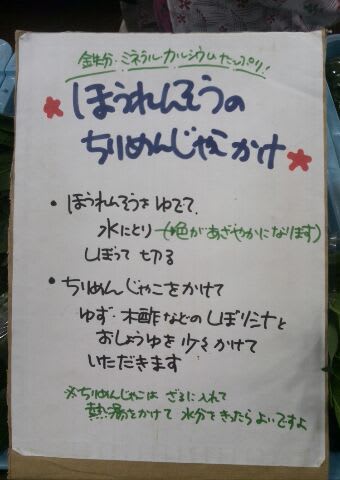 鉄分・ミネラル・カルシウムたっぷり!
ほうれんそうの
ちりめんじゃこかけ
・ほうれんそうをゆでて、
水にとり(色があざやかになります)
しぼって切る
・ちりめんじゃこをかけて
ゆず・木酢などのしぼり汁と
おしょうゆを少々かけて
いただきます
※ちりめんじゃこは ざるに入れて
熱湯をかけて 水分をきったらよいですよ